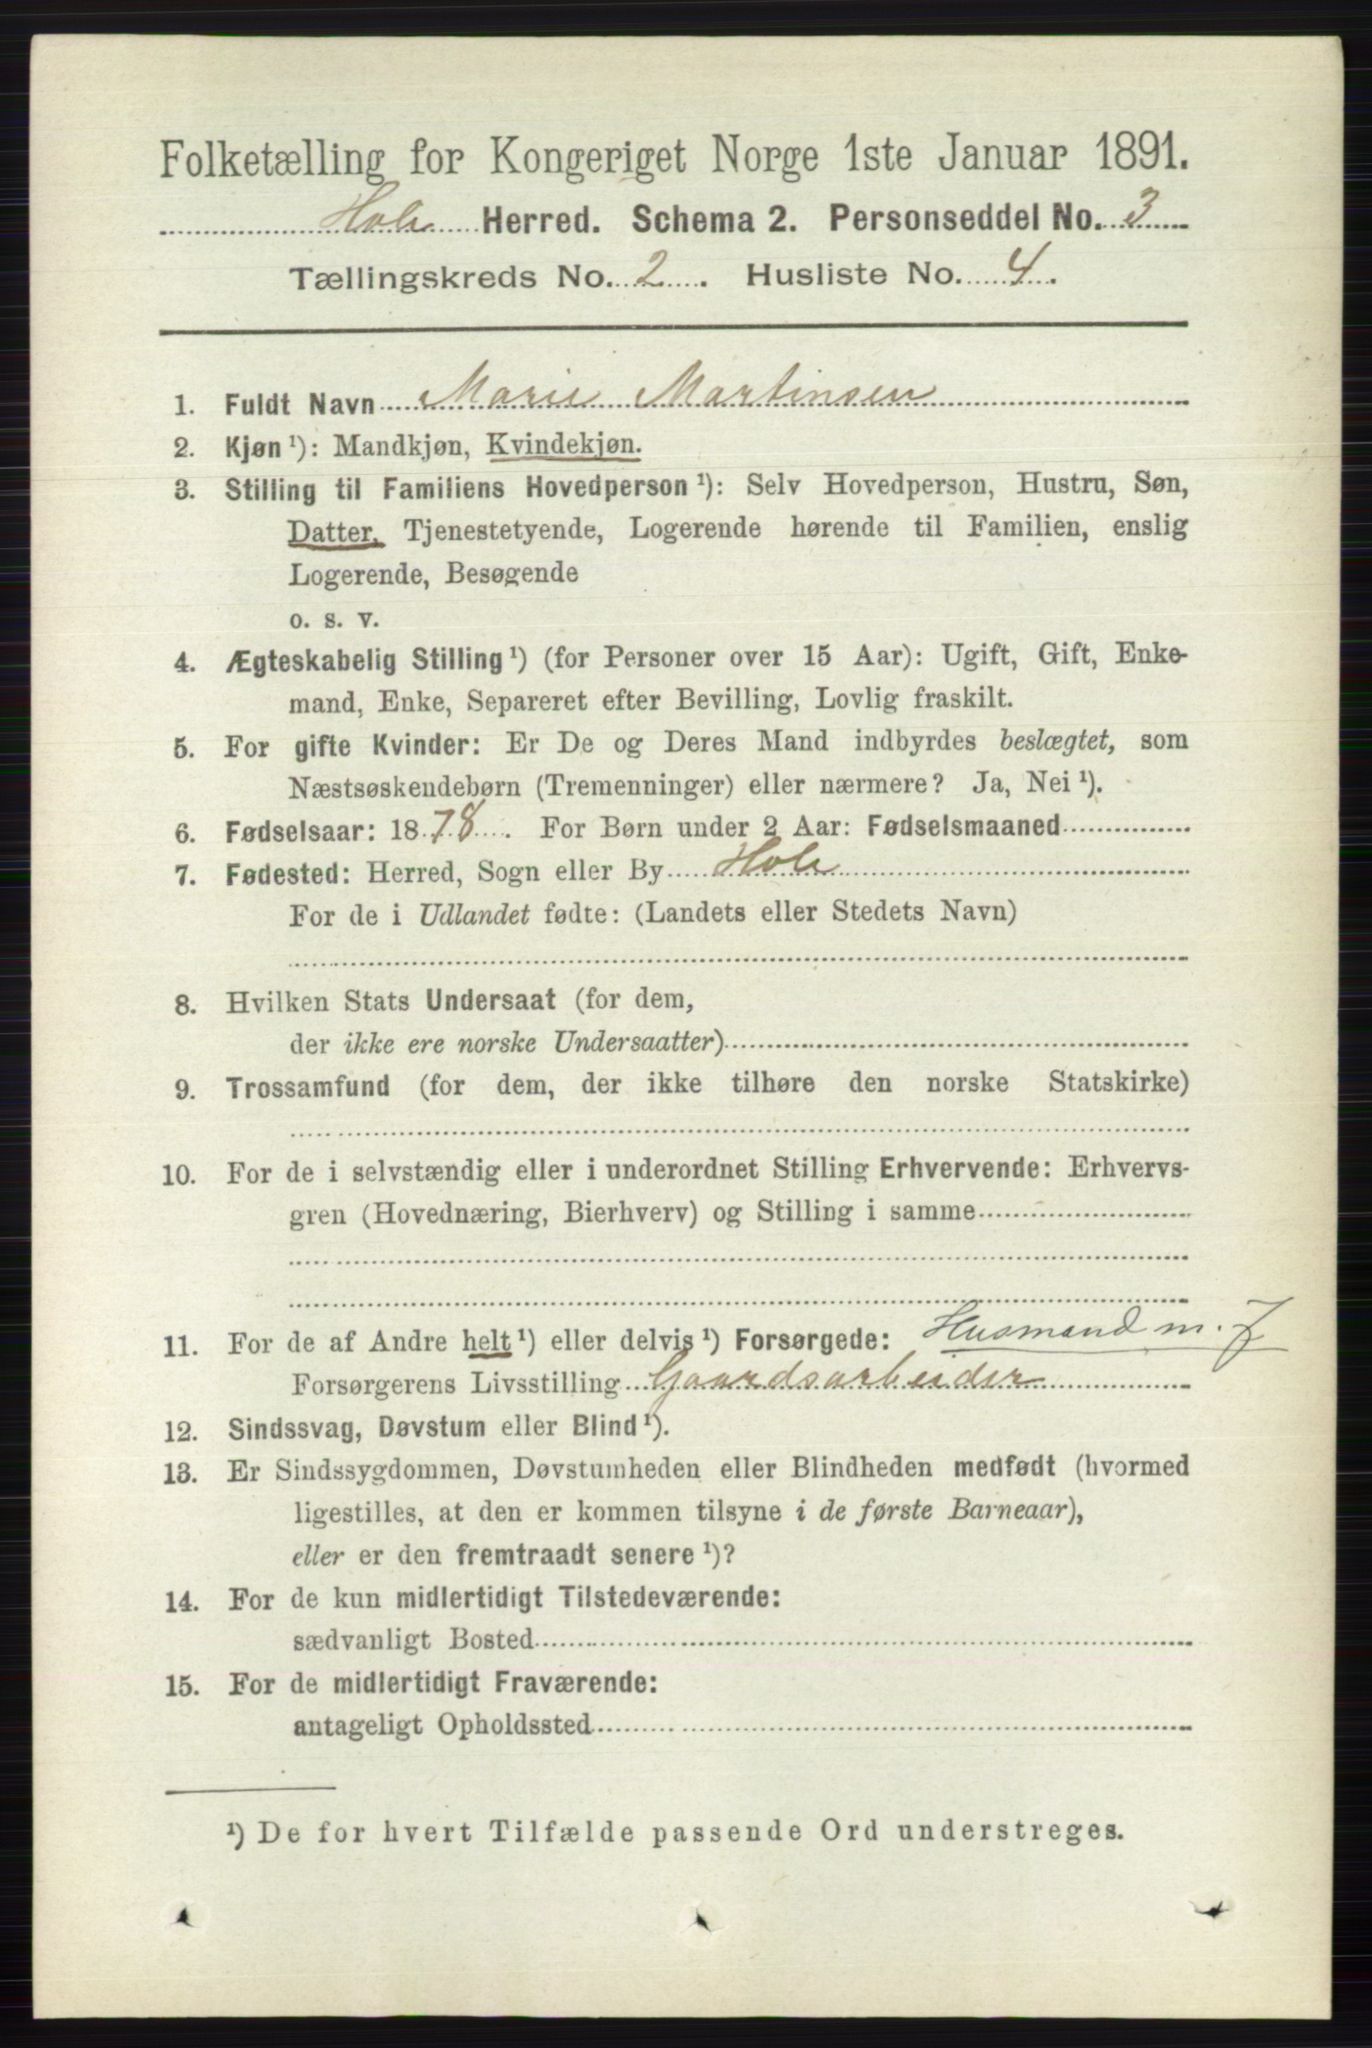 Folketælling for Kongeriget Norge 1ste Januar 1891.
Hole Herred. Schema 2. Personseddel No. 3
Tællingskreds No. 2. Husliste No. 4.
1. Fuldt Navn Marie Martinsen
2. Kjøn¹): Mandkjøn, Kvindekjøn.
3. Stilling til Familiens Hovedperson¹): Selv Hovedperson, Hustru, Søn,
Datter, Tjenestetyende, Logerende hørende til Familien, enslig
Logerende, Besøgende
o. s. v.
4. Ægteskabelig Stilling¹) (for Personer over 15 Aar): Ugift, Gift, Enke-
mand, Enke, Separeret efter Bevilling, Lovlig fraskilt.
5. For gifte Kvinder: Er De og Deres Mand indbyrdes beslægtet, som
Næstsøskendebørn (Tremenninger) eller nærmere? Ja, Nei¹).
6. Fødselsaar: 1878. For Børn under 2 Aar: Fødselsmaaned
7. Fødested: Herred, Sogn eller By Hole
For de i Udlandet fødte: (Landets eller Stedets Navn)
8. Hvilken Stats Undersaat (for dem,
der ikke ere norske Undersaatter)
9. Trossamfund (for dem, der ikke tilhøre den norske Statskirke)
10. For de i selvstændig eller i underordnet Stilling Erhvervende: Erhvervs-
gren (Hovednæring, Bierhverv) og Stilling i samme
11. For de af Andre helt¹) eller delvis¹) Forsørgede: Husmand m. J
Forsørgerens Livsstilling Gaardsarbeider
12. Sindssvag, Døvstum eller Blind¹).
13. Er Sindssygdommen, Døvstumheden eller Blindheden medfødt (hvormed
ligestilles, at den er kommen tilsyne i de første Barneaar),
eller er den fremtraadt senere¹)?
14. For de kun midlertidigt Tilstedeværende:
sædvanligt Bosted
15. For de midlertidigt Fraværende:
antageligt Opholdssted
¹) De for hvert Tilfælde passende Ord understreges.